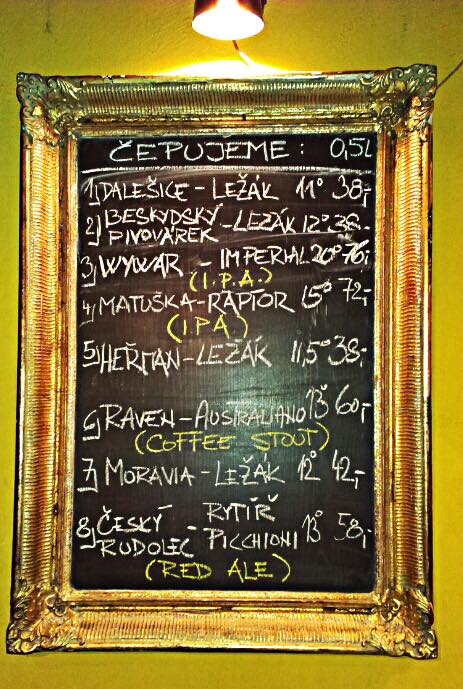 ČEPUJEME: 0,5L
1) DALEŠICE - LEŽÁK 11° 38,-
2) BESKYDSKÝ PIVOVÁREK - LEŽÁK 12° 38,-
3) WYWAR - IMPERIAL 20° 76,-
(I.P.A.)
4) MATUŠKA - RAPTOR 15° 72,-
(IPA)
5) HEŘMAN - LEŽÁK 11,5° 38,-
6) RAVEN - AUSTRALIANO 13° 60,-
(COFFEE STOUT)
7) MORAVIA - LEŽÁK 12° 42,-
8) ČESKÝ RUDOLEC - RYTÍŘ PICCHIONI 13° 58,-
(RED ALE)